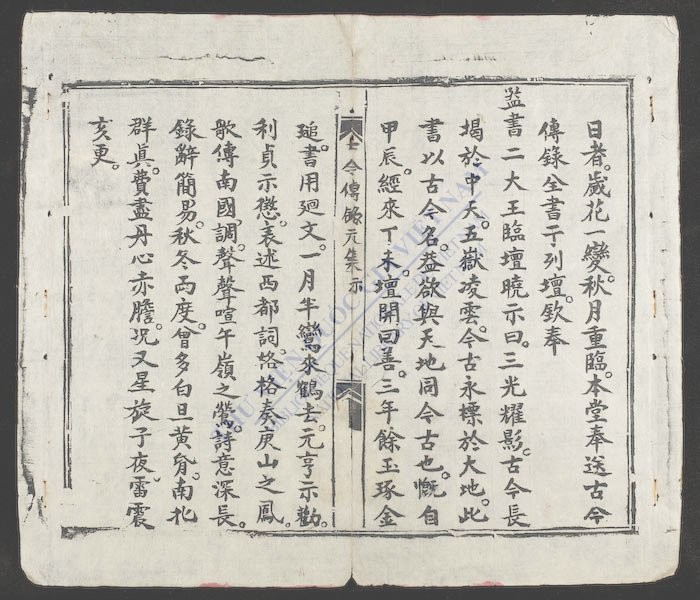 日者。歲花一變。秋月重臨。本堂奉送古今
傳錄全書于列壇。欽奉
書二大王臨壇曉示曰。三光耀影。古今長
揭於中天。五嶽凌雲。今古永標於大地。此
書以古今名。葢欲與天地同今古也。慨自
甲辰。經來丁未。壇開曰善。三年餘玉琢金
古今傳錄元集示
鎚。書用廻文。一月半鸞來鶴去。元亨示勸。
利貞示懲。表述西都詞格奏庾山之鳳。
歌傳南國。調聲聲喧午嶺之鶯。詩意深長。
錄辭簡易。秋冬兩度。曾多白旦黃昏。南北
群真。費盡丹心赤膽。况又星旋子夜。雷震
亥更。
THƯ VIỆN QUỐC GIA VIỆT NAM